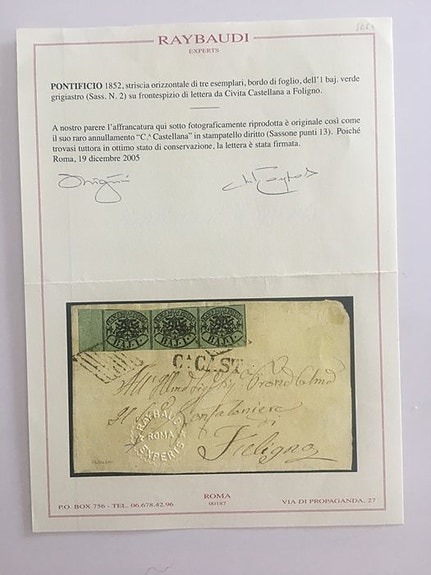 RAYBAUDI
EXPERTS
PONTIFICIO 1852, striscia orizzontale di tre esemplari, bordo di foglio, dell'1 baj. verde
grigiastro (Sass. N. 2) su frontespizio di lettera da Civita Castellana a Foligno.
A nostro parere l'affrancatura qui sotto fotograficamente riprodotta è originale così come
il suo raro annullamento "C.ª Castellana" in stampatello diritto (Sassone punti 13). Poiché
trovasi tuttora in ottimo stato di conservazione, la lettera è stata firmata.
Roma, 19 dicembre 2005
BAJ·1· BAJ·1· BAJ·1·
Cᴬ CAST
Gonfaloniere
di
Fuligno
RAYBAUDI
ROMA
EXPERTS
P.O. BOX 756 - TEL. 06.678.42.96
ROMA
00187
VIA DI PROPAGANDA, 27